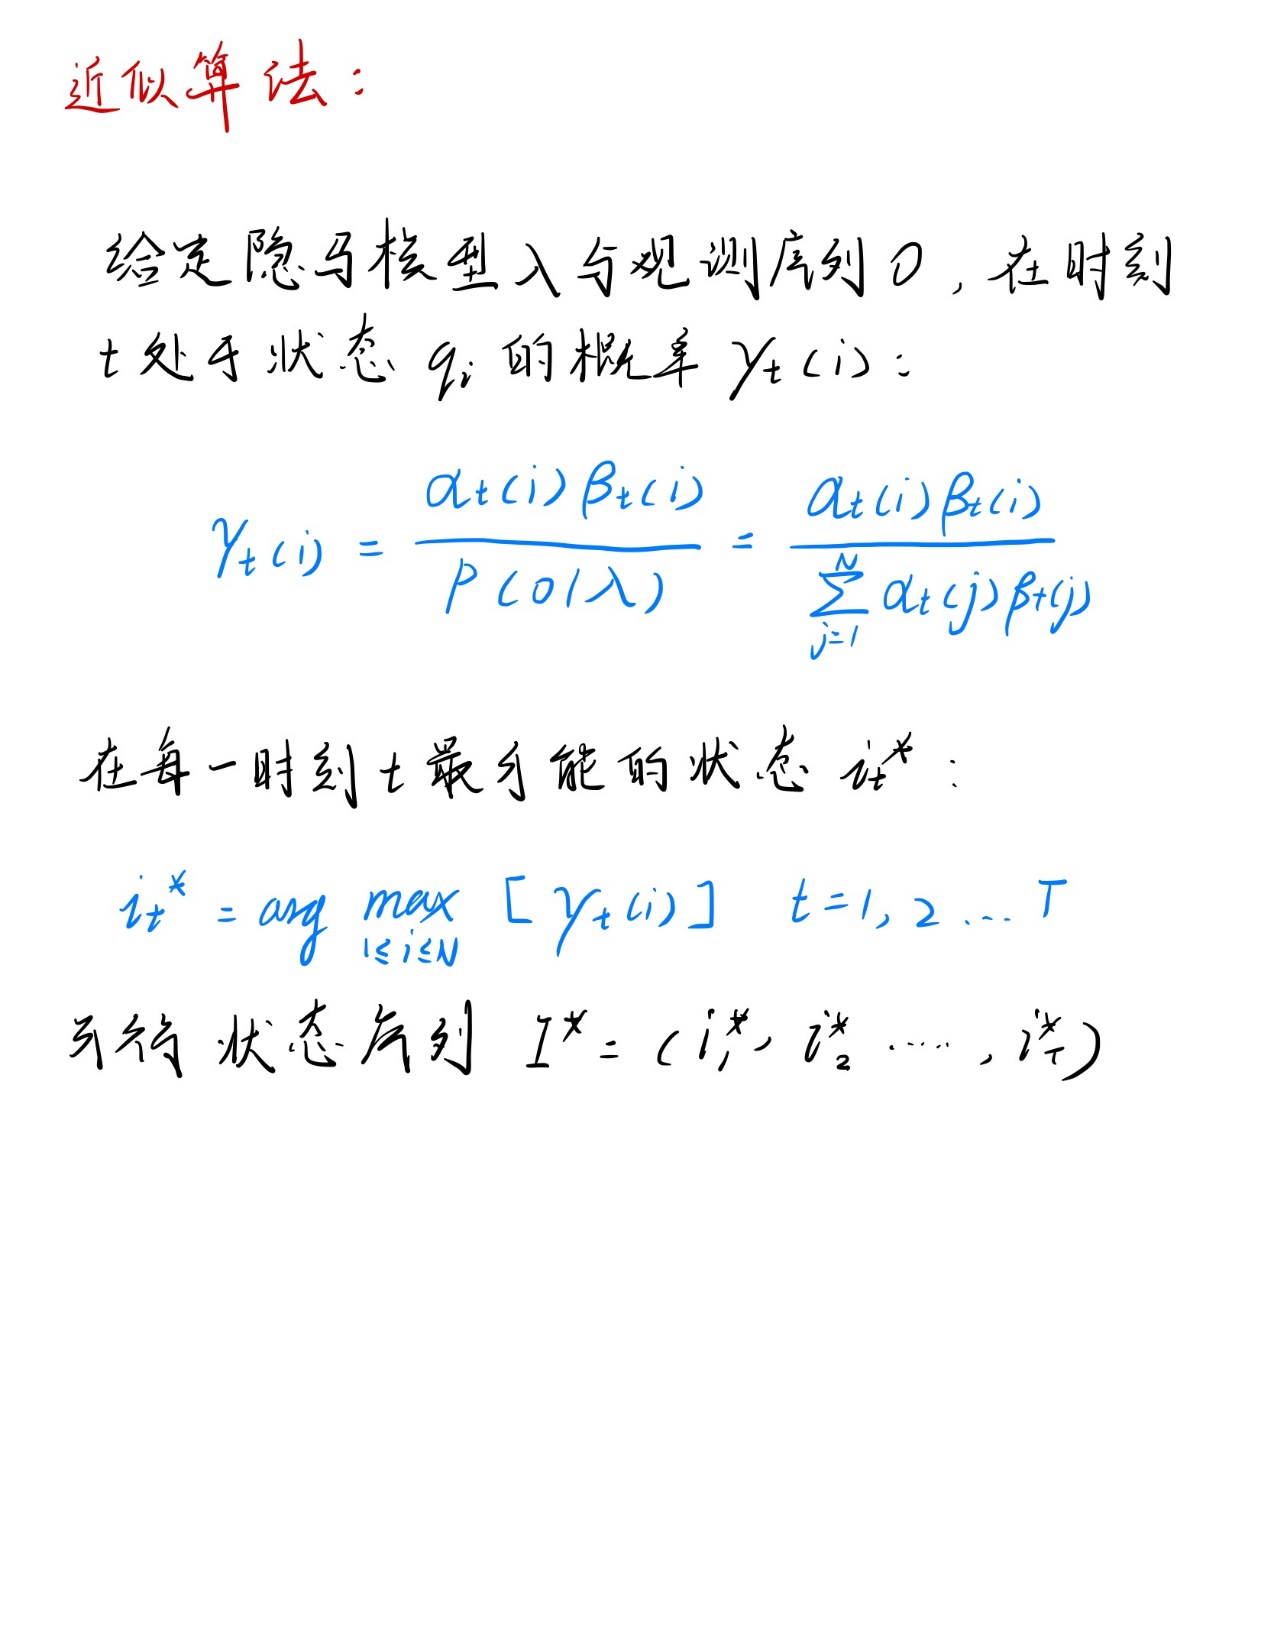 近似算法：
给定隐马模型λ与观测序列O，在时刻
t处于状态 qᵢ 的概率 γₜ(i)：
γₜ(i) = αₜ(i)βₜ(i) / P(O|λ) = αₜ(i)βₜ(i) / ∑_{j=1}^{N} αₜ(j)βₜ(j)
在每一时刻t最可能的状态 iₜ*：
iₜ* = arg max_{1≤i≤N} [γₜ(i)] t=1,2...T
可得状态序列 I* = (i₁*, i₂* ······, i_T*)